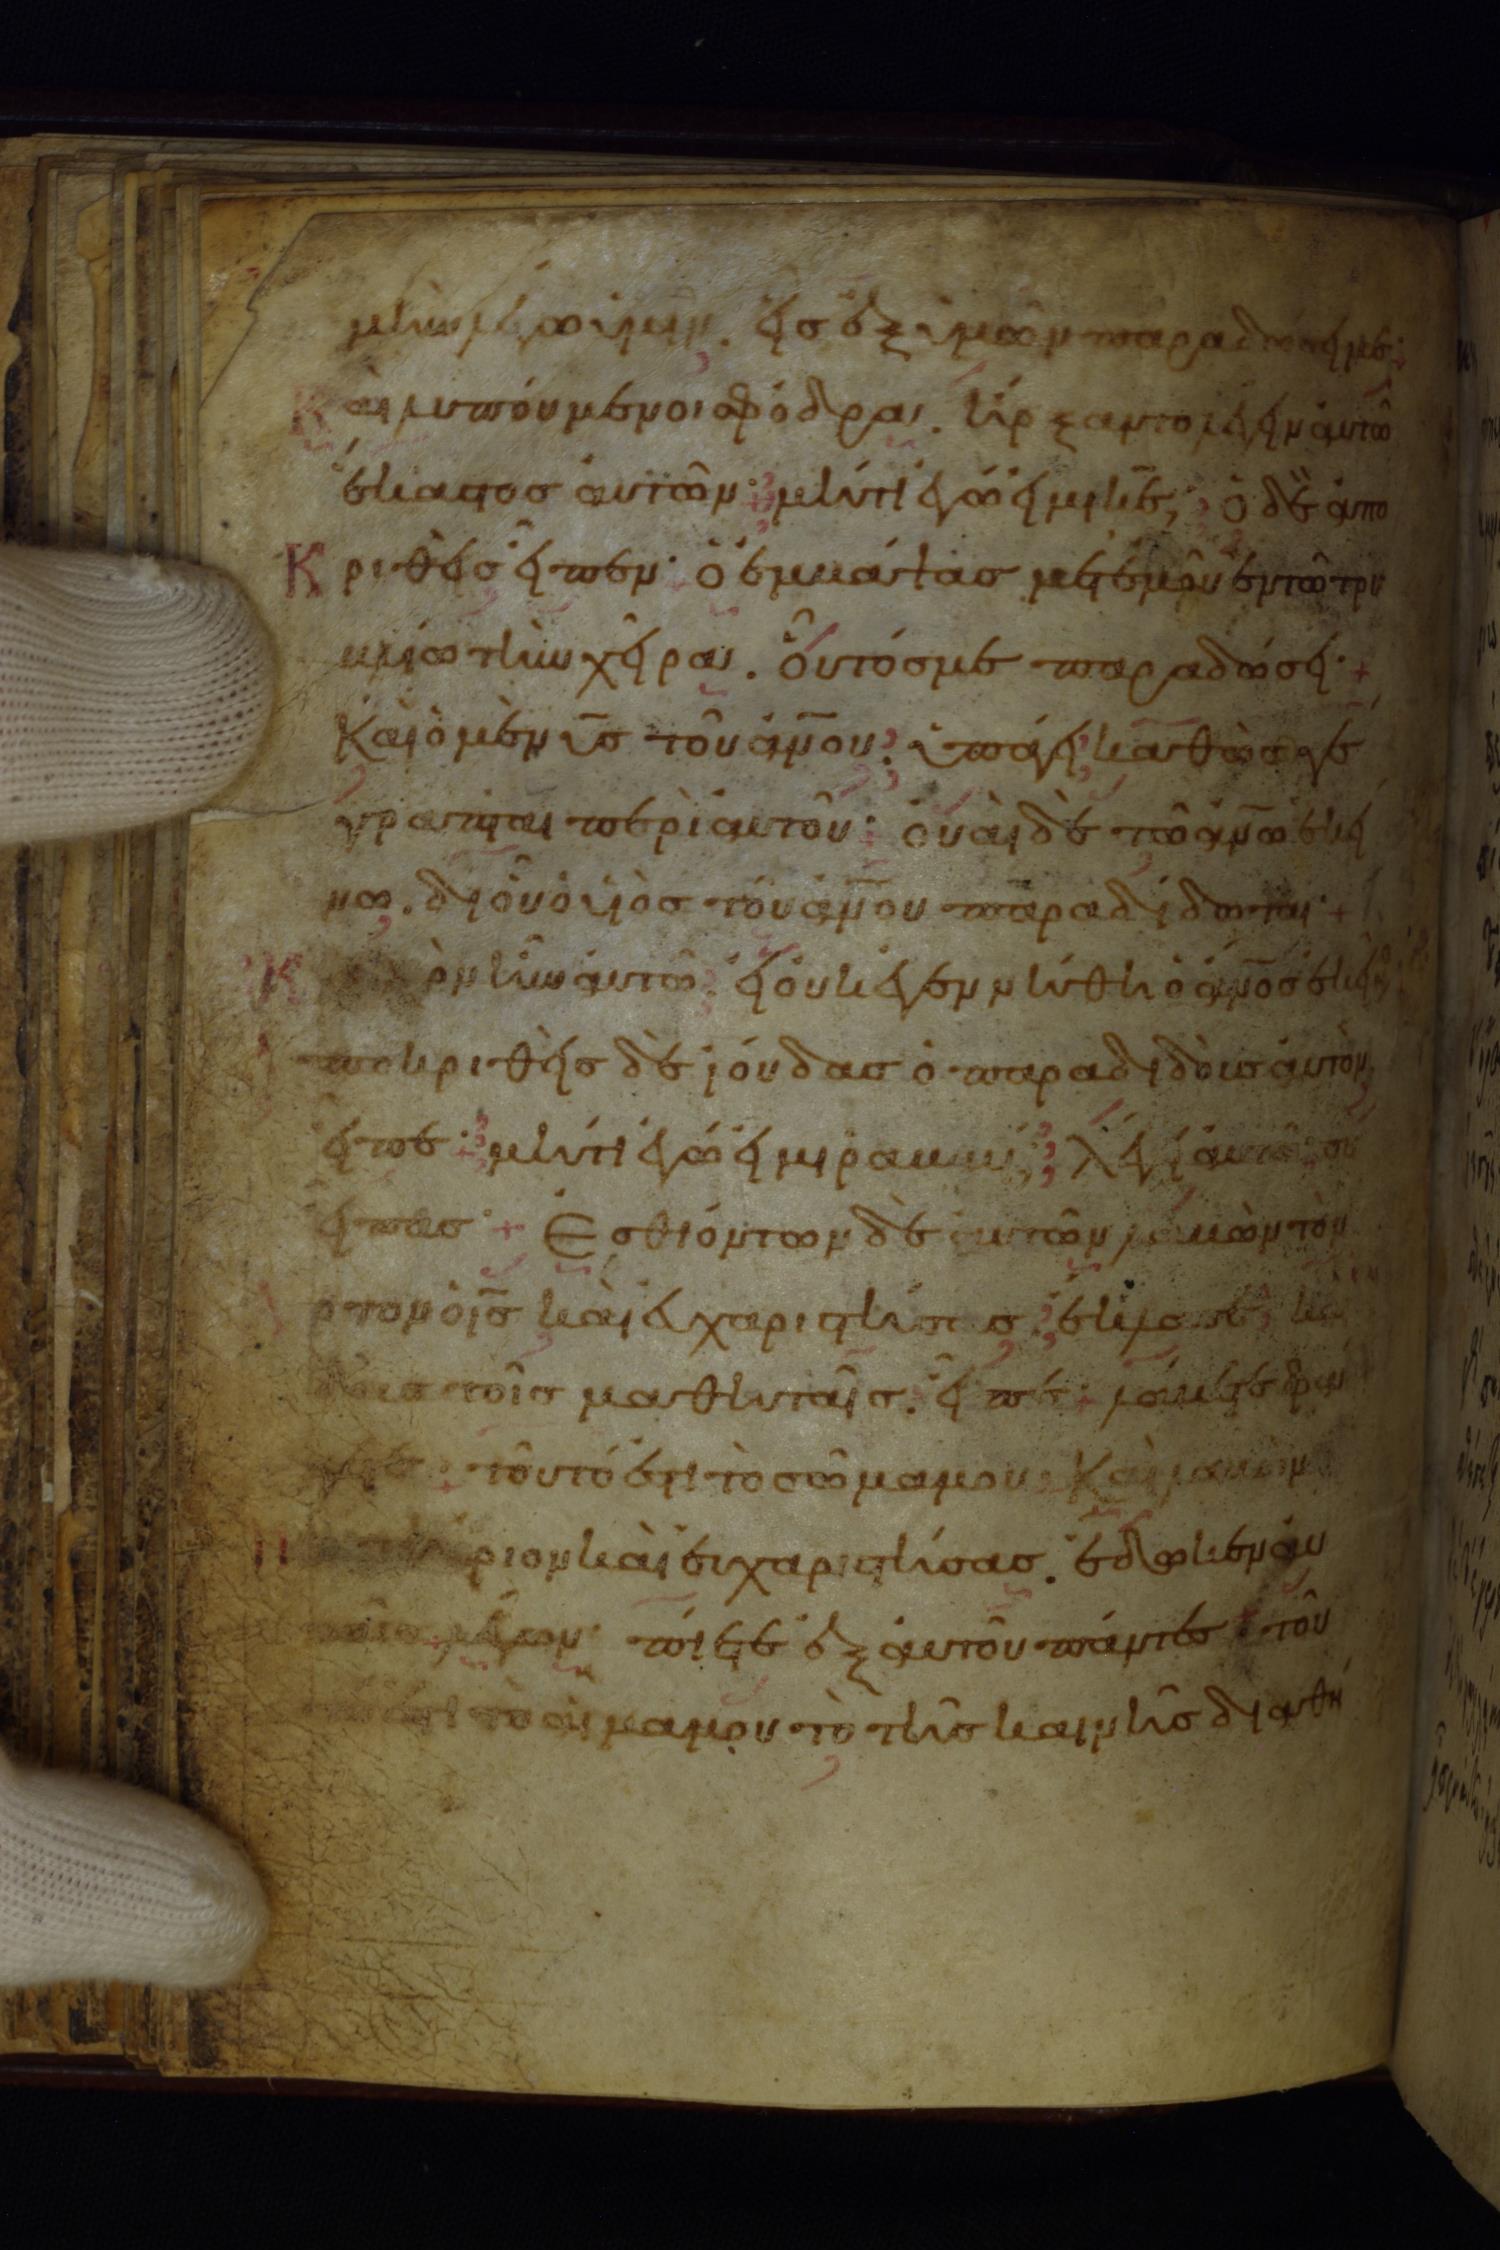 μὴν λέγω ὑμῖν. εἷς ἐξ ὑμῶν παραδώσει με:
Καὶ λυπούμενοι σφόδρα. ἤρξαντο λέγειν αυτῶ
ἕκαστος αυτῶν: μήτι ἐγώ εἰμι κε; ὁ δὲ ἀπο
Κριθεὶς εἶπεν· ὁ ἐμβάψας μετεμοῦ ἐν τῶ τρυ
βλίω τὴν χεῖρα. οὗτός με παραδώσει·+
Καὶ ὁ μὲν υς τοῦ ανου. ὑπάγει καθὼς γέ
γραπται περὶ αυτοῦ: ουαὶ δὲ τῶ ανω ἐκεί
νω. δι οὗ ὁ υιὸς τοῦ ανου παραδίδοται·+
Κ ὸν ἦν αυτῶ. εἰ ουκ ἐγεννήθη ὁ ανος ἐκεῖν
ποκριθεὶς δὲ ιούδας ὁ παραδιδοὺς αυτὸν
εἶπε: μήτι ἐγώ εἰμι ραββί; λέγει αυτῶ σὺ
εἶπας·+ Εσθιόντων δὲ αυτῶν λαβὼν τὸν
ρτον ὁ ις καὶ ευχαριστήσας. ἔκλασε
τοῖς μαθηταῖς. εἶπε: λάβετε φάγε
τοῦτό ἐστι τὸ σῶμα μου. Καὶ λαβὼν
ριον καὶ ευχαριστήσας. ἔδωκεν αυ
λέγων· πίετε ἐξ αυτοῦ πάντες: τοῦ
τὸ αἷμα μου τὸ τῆς καινῆς διαθή